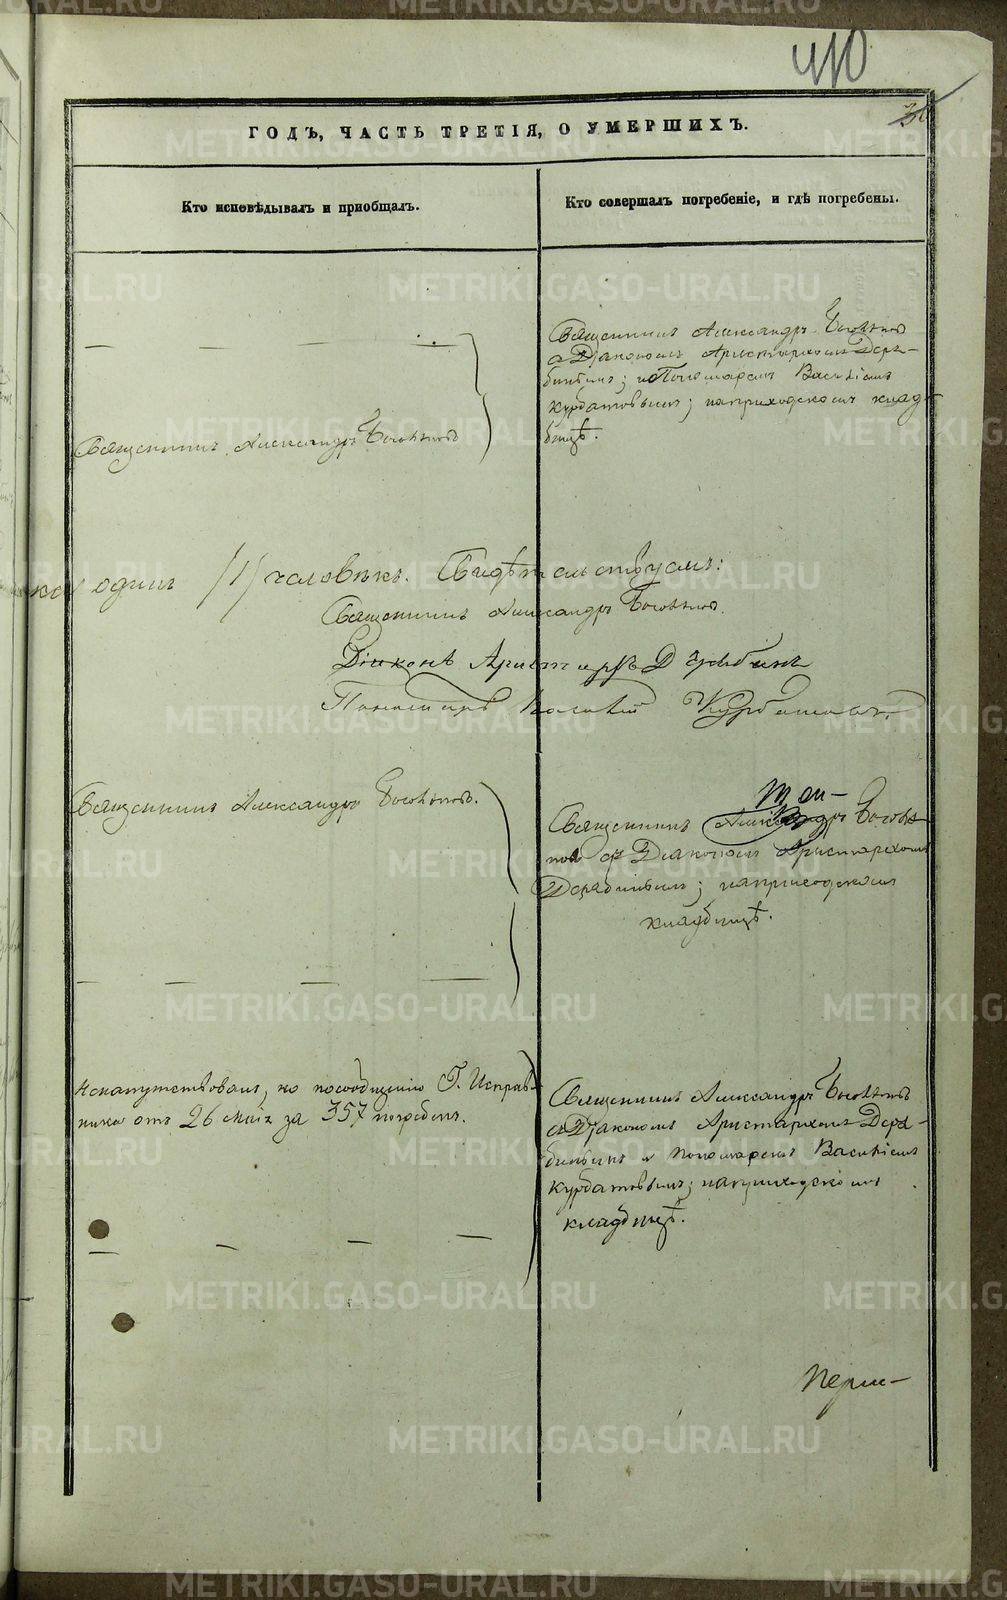 410
ГОДЪ, ЧАСТЬ ТРЕТІЯ, О УМЕРШИХЪ.
Кто исповѣдывалъ и приобщалъ.
Кто совершалъ погребеніе, и гдѣ погребены.
Священникъ Александръ Боголѣповъ
Священникъ Александръ Боголѣповъ
съ Діакономъ Аристархомъ Деря-
бинымъ; и Пономаремъ Василіемъ
Курбатовымъ; на приходскомъ клад-
бищѣ.
одинъ /1/ человѣкъ. Свидѣтельствуемъ:
Священникъ Александръ Боголѣповъ.
Діаконъ Аристархъ Дерябинъ
Пономарь Василій Курбатовъ.
Священникъ Александръ Боголѣповъ.
Священникъ Александръ Боголѣ-
повъ съ Діакономъ Аристархомъ
Дерябинымъ; на приходскомъ
кладбищѣ.
Не напутствованъ, но по сообщенію Г. Исправ-
ника отъ 26 мая за 357 погребенъ.
Священникъ Александръ Боголѣповъ
съ Діакономъ Аристархомъ Деря-
бинымъ и Пономаремъ Василіемъ
Курбатовымъ; на приходскомъ
кладбищѣ.
Перм-
METRIKI.GASO-URAL.RU